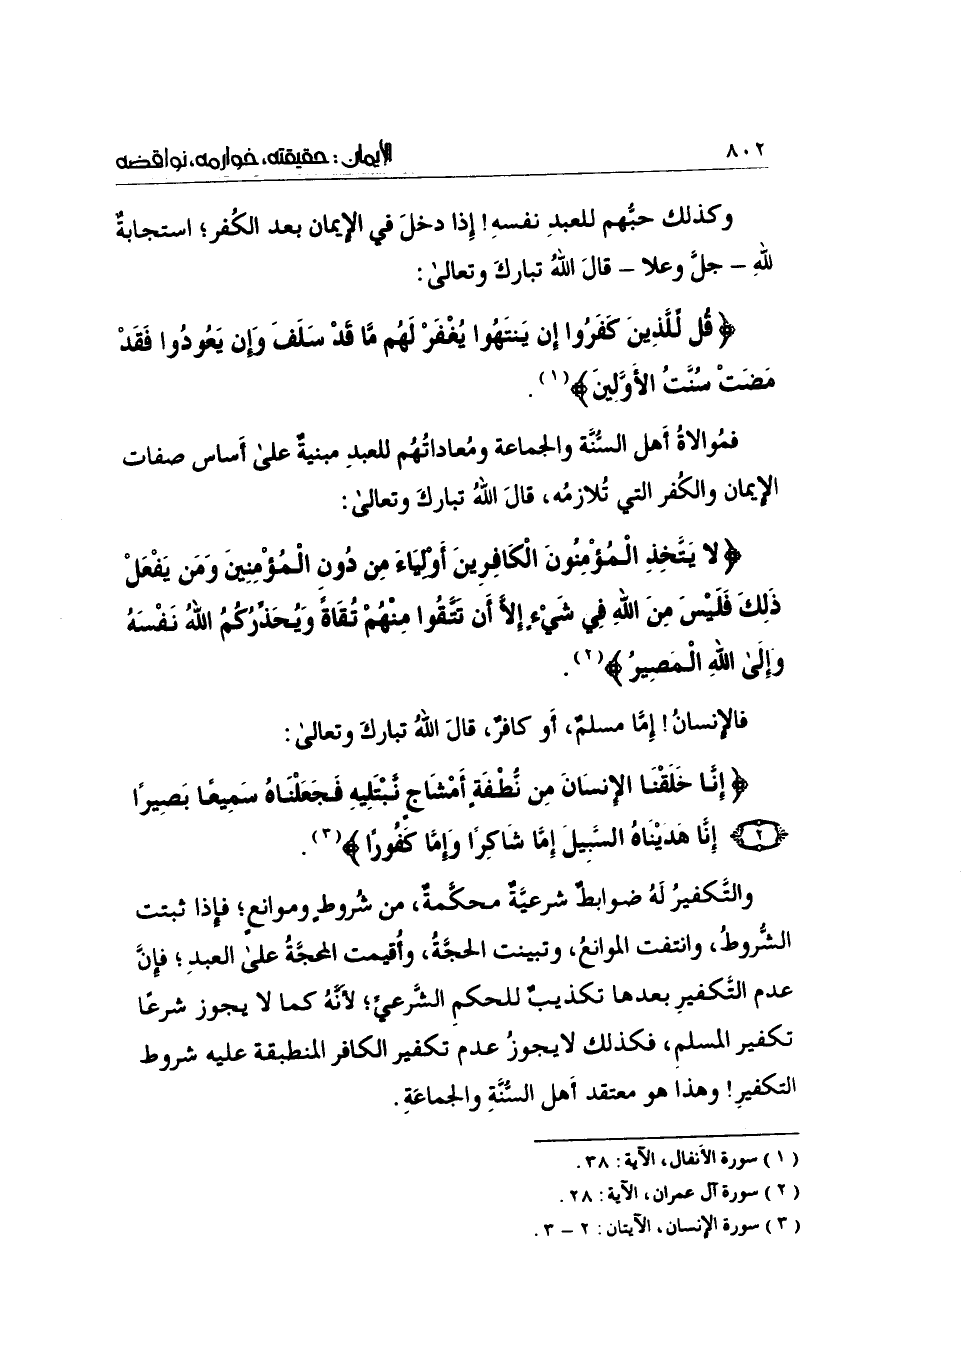 ٨٠٢
الأيمان : حقيقته، خوارمه، نواقضه
وكذلك حبُّهم للعبدِ نفسهِ! إِذا دخلَ في الإيمان بعد الكُفر؛ استجابةٌ
للهِ – جلَّ وعلا – قالَ اللهُ تباركَ وتعالىٰ:
﴿ قُل لِّلَّذِينَ كَفَرُوا إِن يَنتَهُوا يُغْفَرْ لَهُم مَّا قَدْ سَلَفَ وَإِن يَعُودُوا فَقَدْ
مَضَتْ سُنَّتُ الأَوَّلِينَ﴾(١).
فمُوالاةُ أهل السُّنَّة والجماعة ومُعاداتُهُم للعبدِ مبنيةٌ علىٰ أساس صفات
الإيمان والكُفر التي تُلازمُه، قالَ اللهُ تباركَ وتعالىٰ:
﴿ لا يَتَّخِذِ الْمُؤْمِنُونَ الْكَافِرِينَ أَوْلِيَاءَ مِن دُونِ الْمُؤْمِنِينَ وَمَن يَفْعَلْ
ذَلِكَ فَلَيْسَ مِنَ اللهِ فِي شَيْءٍ إِلاَّ أَن تَتَّقُوا مِنْهُمْ تُقَاةً وَيُحَذِّرُكُمُ اللهُ نَفْسَهُ
وَإِلَىٰ اللهِ الْمَصِيرُ ﴾(٢).
فالإنسانُ! إِمَّا مسلمٌ، أو كافرٌ، قالَ اللهُ تباركَ وتعالىٰ:
﴿ إِنَّا خَلَقْنَا الإِنسَانَ مِن نُّطْفَةٍ أَمْشَاجٍ نَّبْتَلِيهِ فَجَعَلْنَاهُ سَمِيعًا بَصِيرًا
﴿٢﴾ إِنَّا هَدَيْنَاهُ السَّبِيلَ إِمَّا شَاكِرًا وَإِمَّا كَفُورًا ﴾(٣).
والتَّكفيرُ لَهُ ضوابطٌ شرعيَّةٌ محكَّمةٌ، من شُروطٍ وموانعٍ؛ فإِذا ثبتت
الشُّروطُ، وانتفت الموانعُ، وتبينت الحجَّةُ، وأُقيمت المحجَّةُ علىٰ العبدِ؛ فإِنَّ
عدم التَّكفيرِ بعدها تكذيبٌ للحكمِ الشَّرعيِّ؛ لأنَّهُ كما لا يجوز شرعًا
تكفير المسلمِ، فكذلك لا يجوزُ عدم تكفير الكافر المنطبقة عليه شروط
التكفيرِ! وهذا هو معتقد أهل السُّنَّةِ والجماعَةِ.
(١) سورة الأنفال، الآية: ٣٨.
(٢) سورة آل عمران، الآية: ٢٨.
(٣) سورة الإنسان، الآيتان: ٢ – ٣.